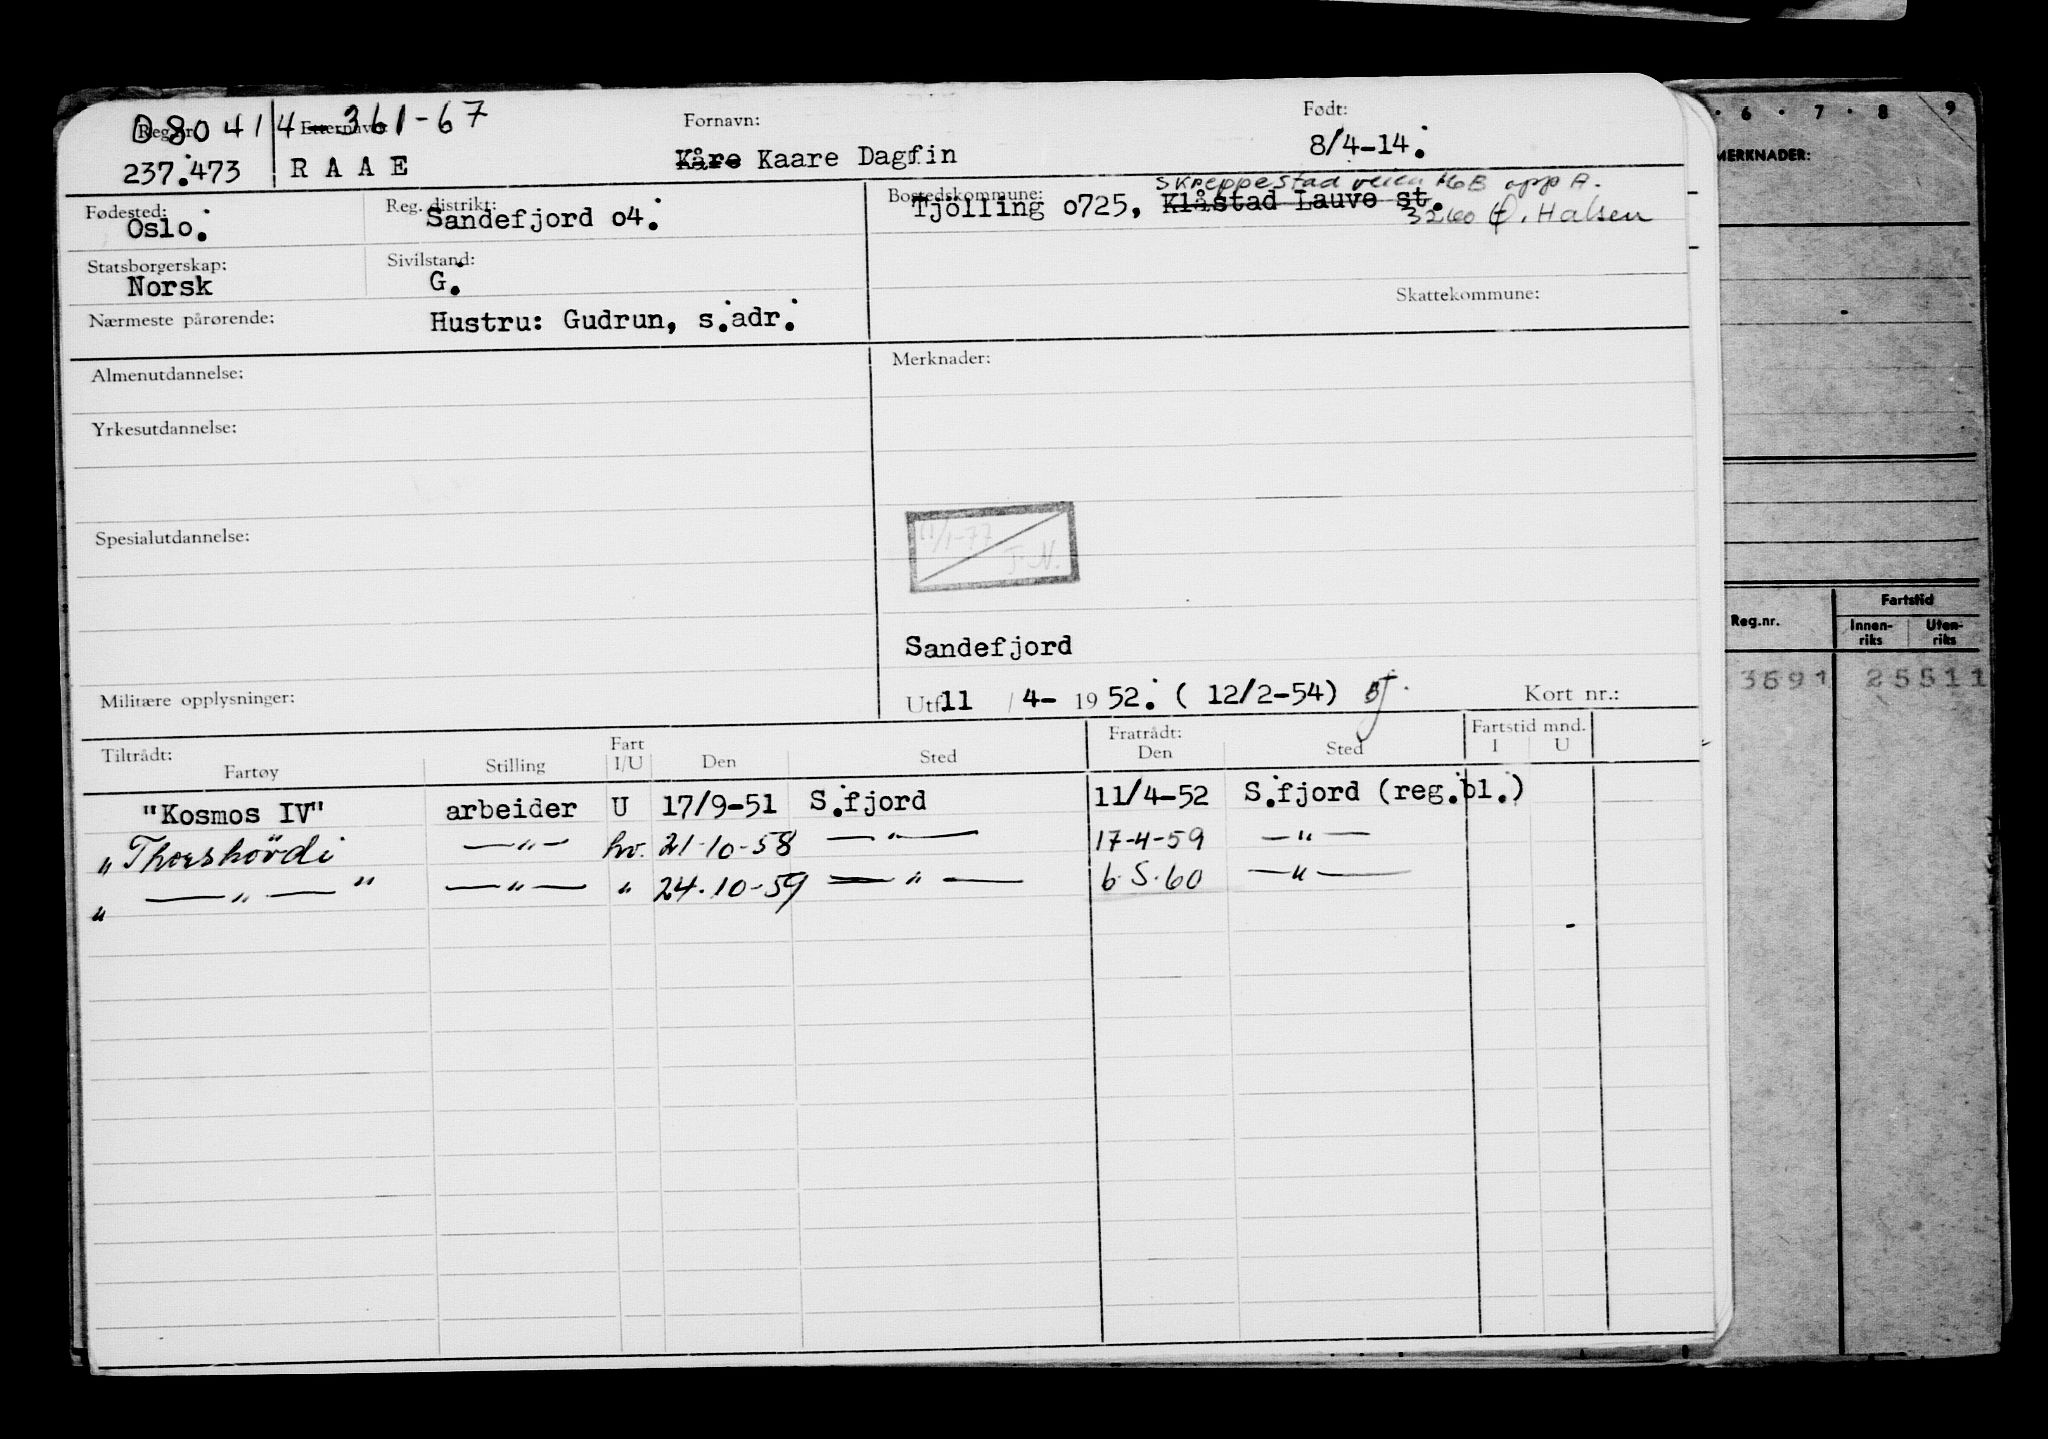 080414 361-67
Reg.nr. Etternavn: Fornavn: Født:
237.473 R A A E Kåre Kaare Dagfin 8/4-14.
Fødested: Reg. distrikt: Bostedskommune: Skreppestad veien 16B opp A.
Oslo. Sandefjord o4. Tjölling o725, Klåstad Lauve st. 3260 Ø. Halsen
Statsborgerskap: Sivilstand:
Norsk G.
Skattekommune:
Nærmeste pårørende: Hustru: Gudrun, s.adr.
Almenutdannelse: Merknader:
Yrkesutdannelse:
Spesialutdannelse:
11/1-77
F.N.
Sandefjord
Militære opplysninger: Utf. 11 / 4- 19 52. ( 12/2-54) Kort nr.:
Tiltrådt: Fratrådt: Fartstid mnd.
Fartøy Stilling Fart I/U Den Sted Den Sted I U
"Kosmos IV" arbeider U 17/9-51 S.fjord 11/4-52 S.fjord (reg.bl.)
" Thorshövdi — " — hv. 21-10-58 — " — 17-4-59 — " —
" — " — " — " — " 24.10-59 — " — 6.5.60 — " —
6 . 7 . 8 9
MERKNADER:
Reg.nr. Fartstid
Innen-riks Uten-riks
3691 25511